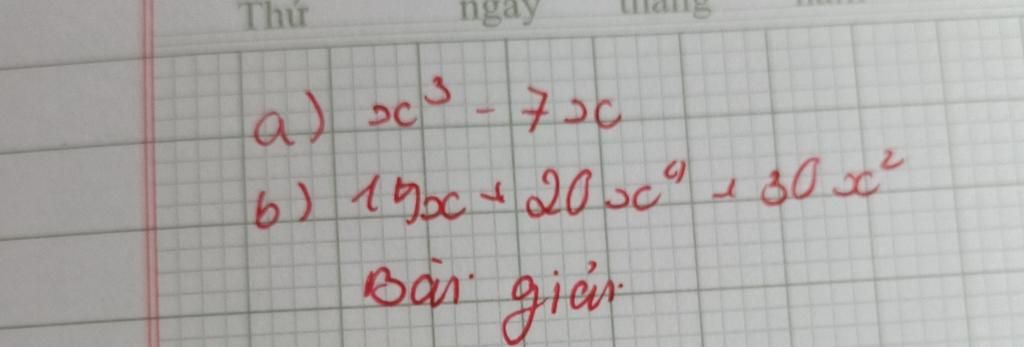 Thứ ngày tháng
a) x³ - 7x
b) 15x + 20x⁴ + 30x²
Bài giải